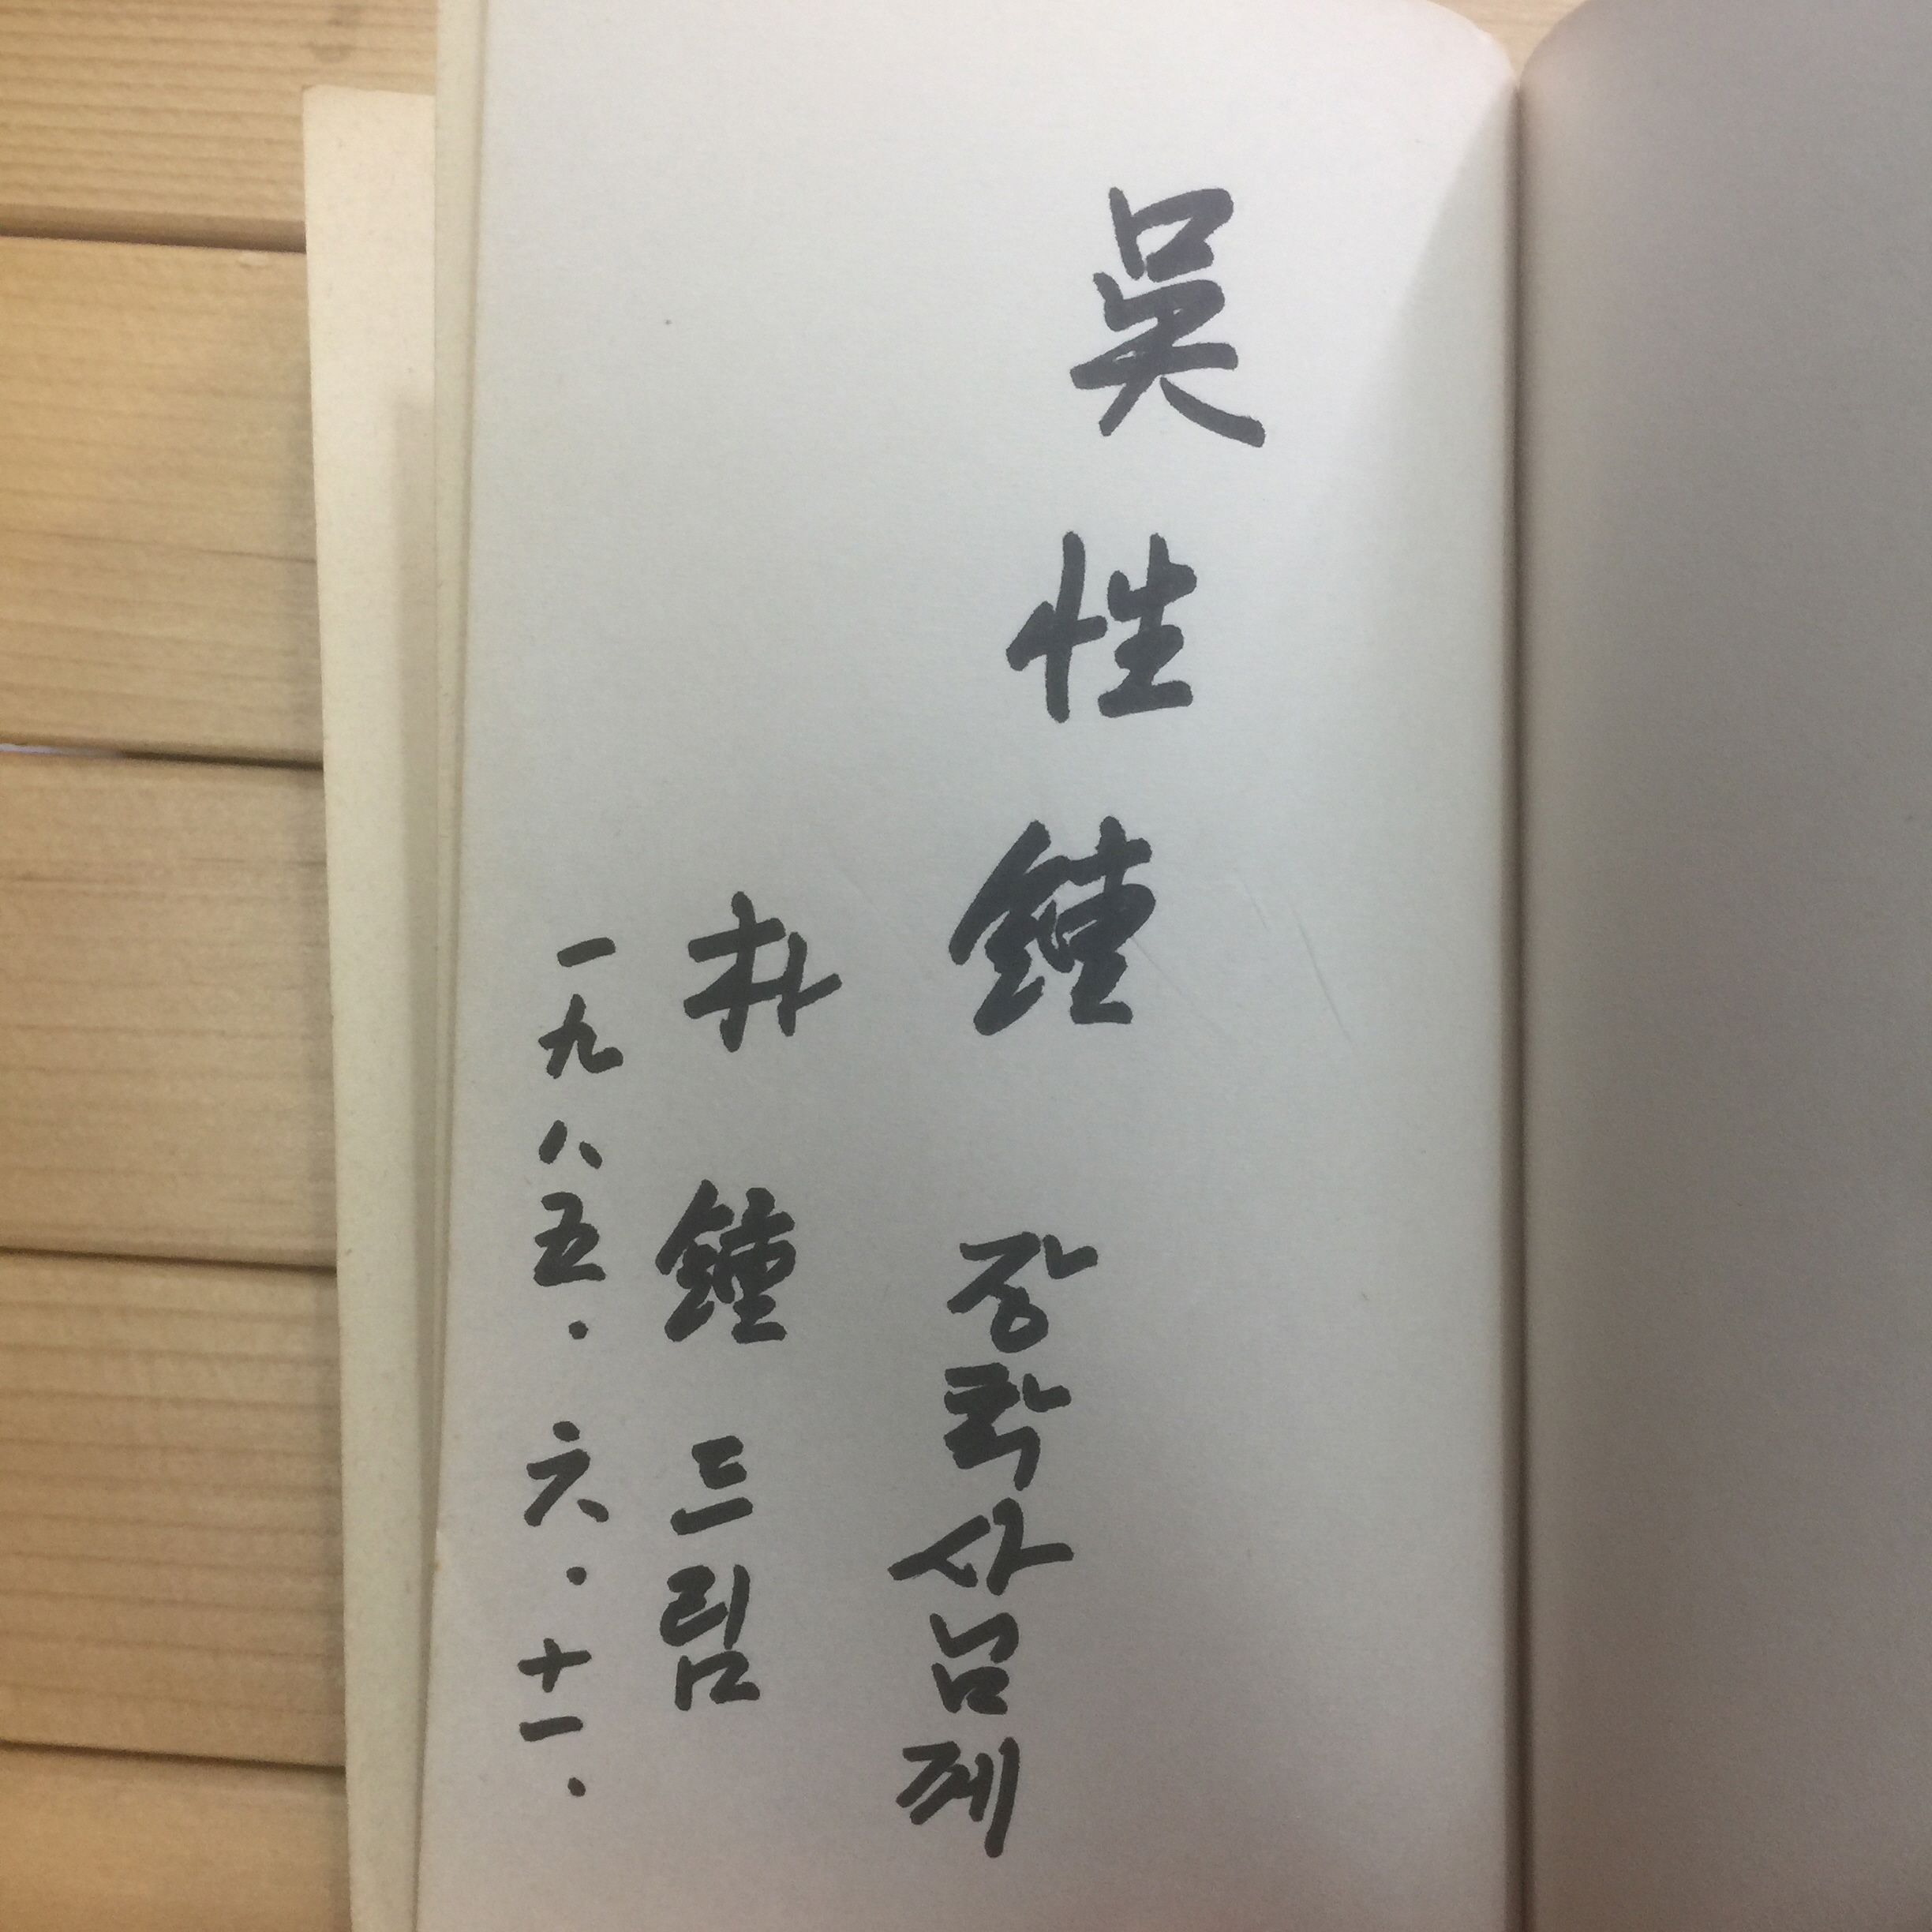 吳性鍾 장학사님께
朴鍾 드림
一九八五.六.十一.